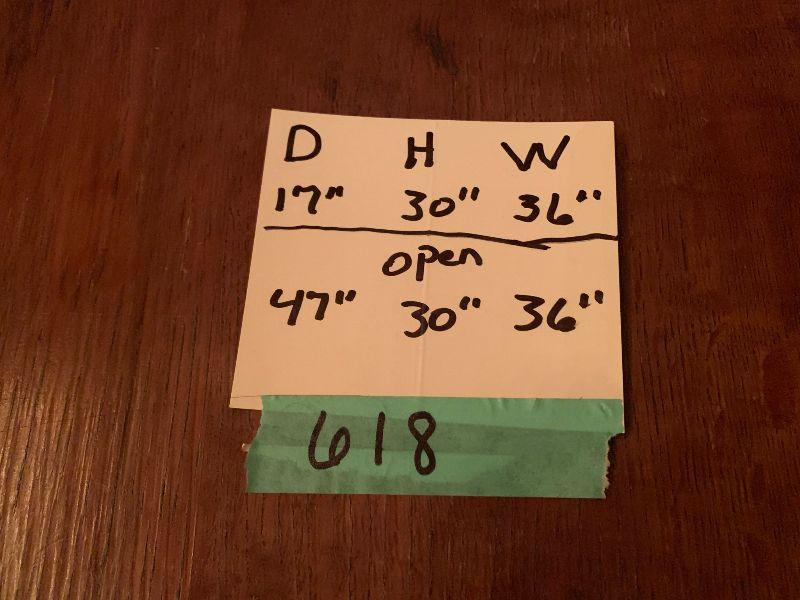 D H W
17" 30" 36"
open
47" 30" 36"
618